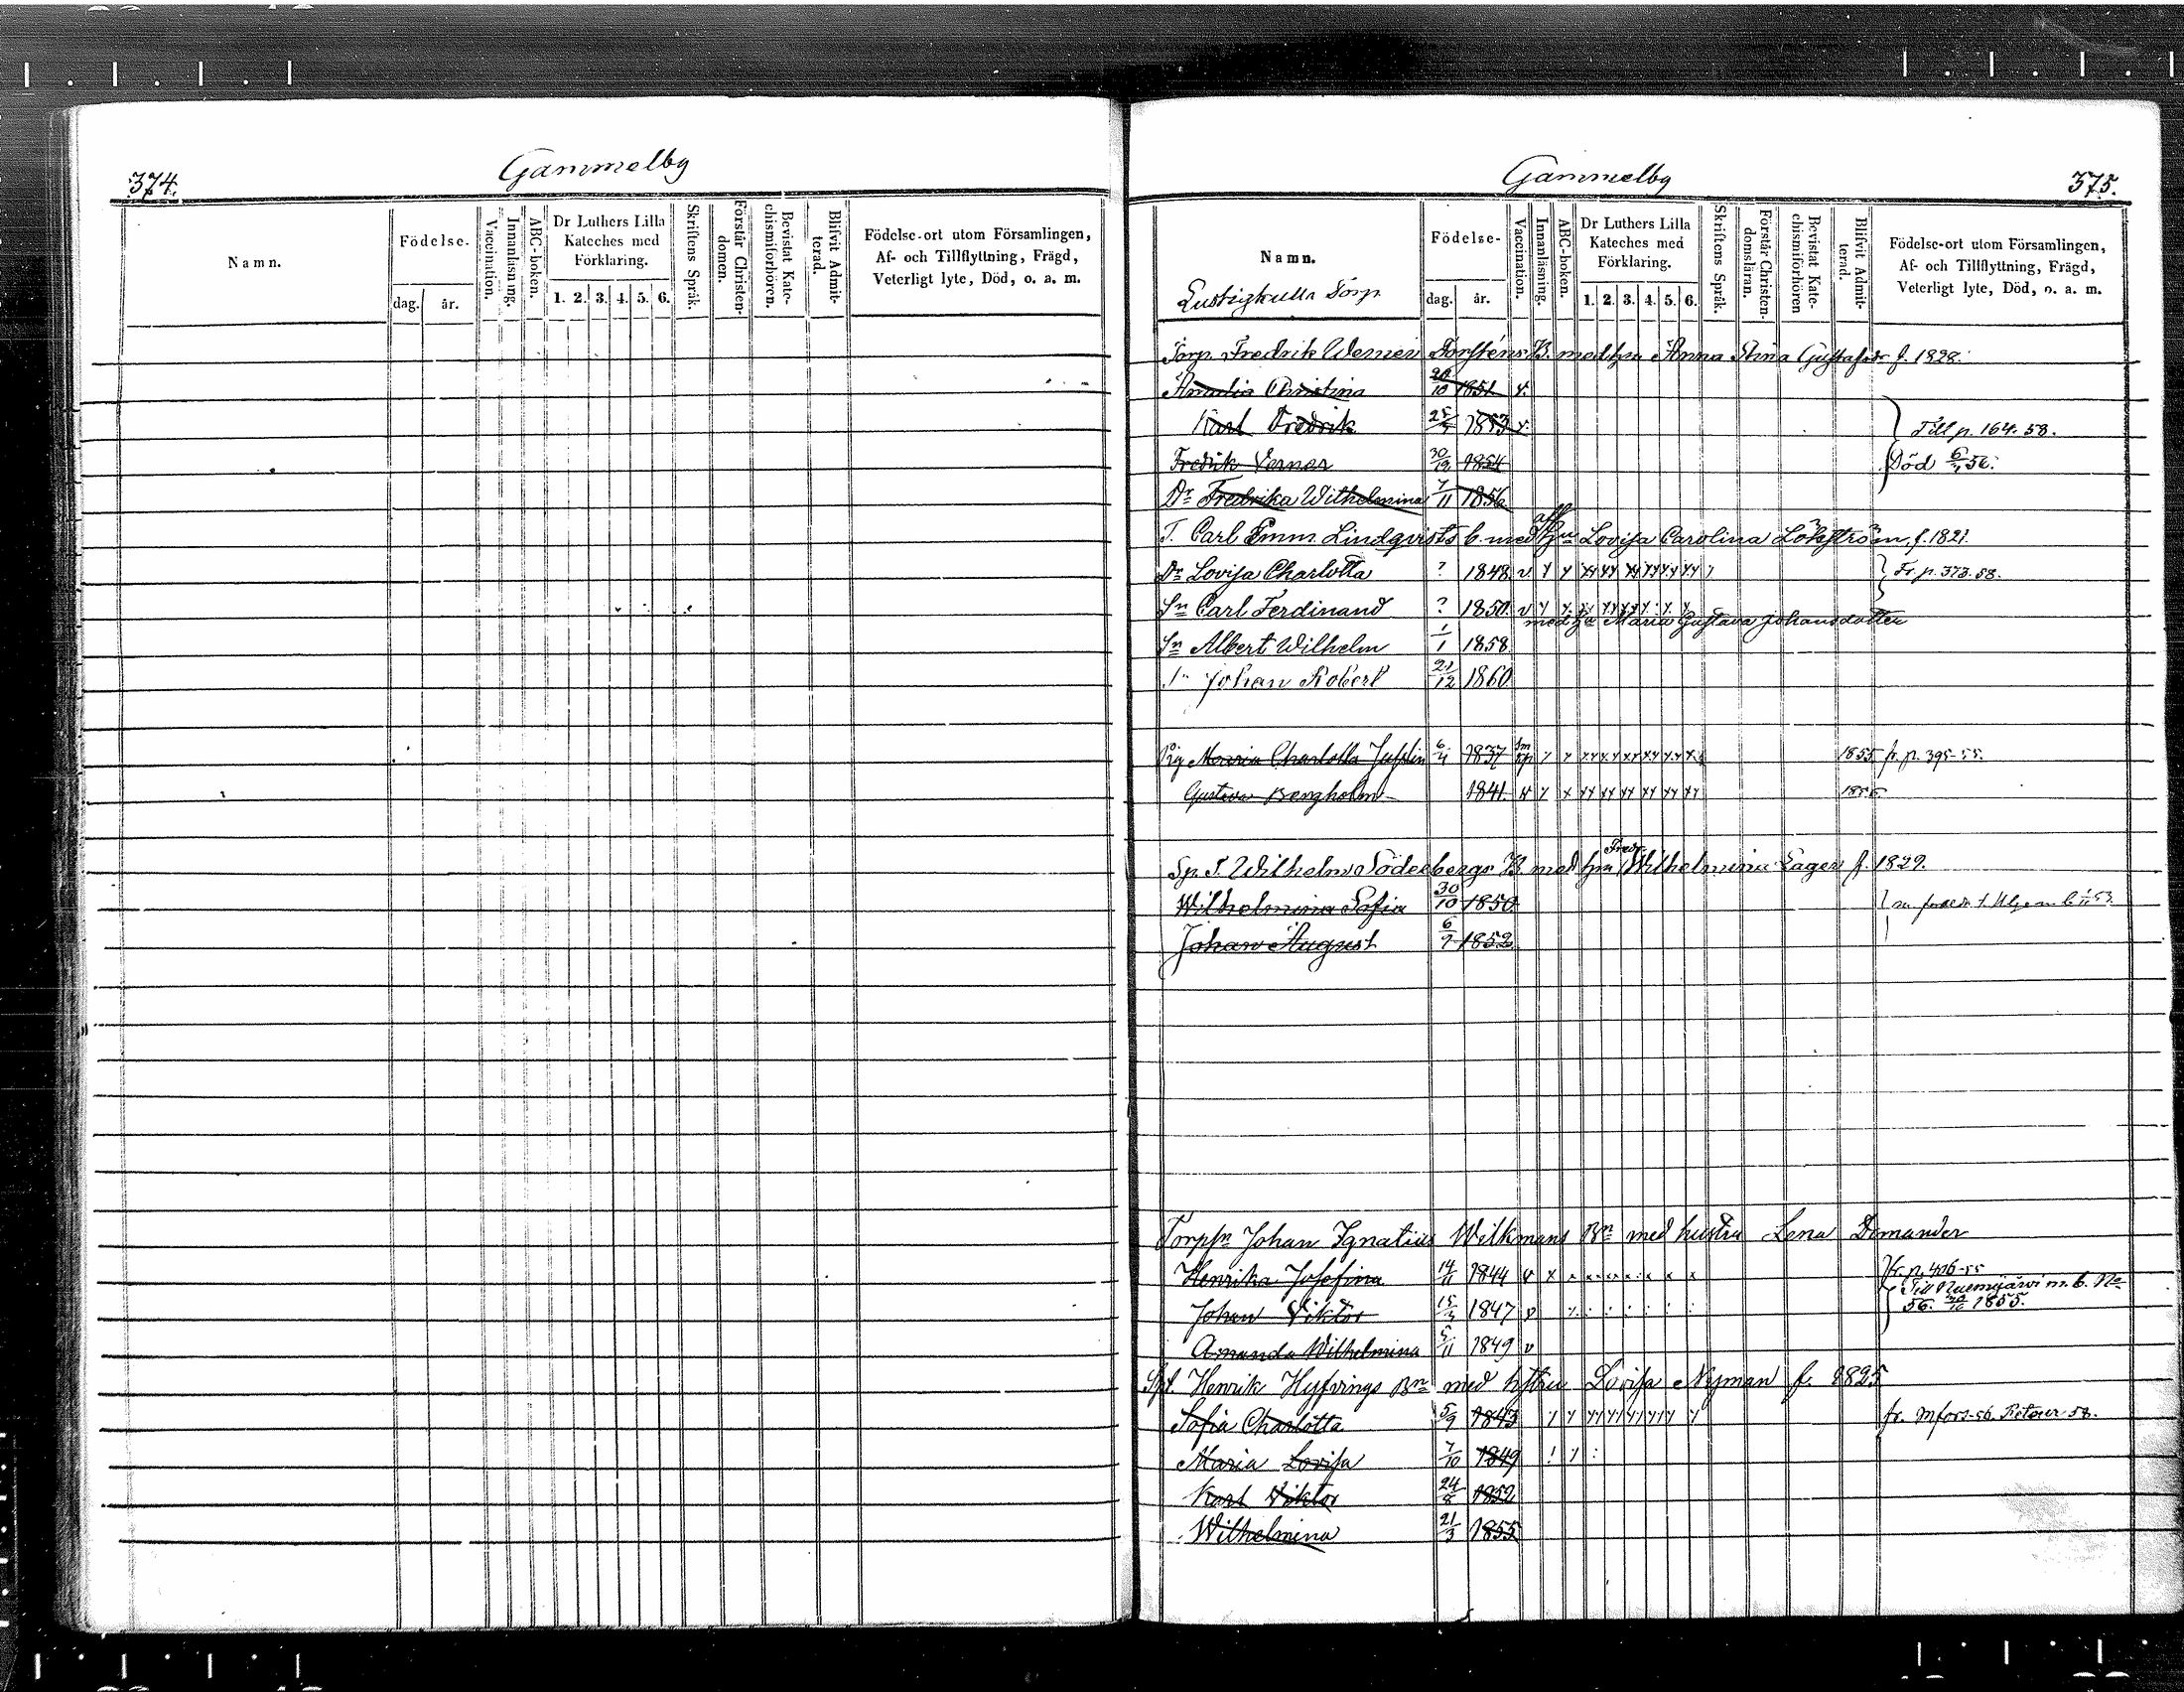 374.
Gammelby
Namn.
Födelse-
dag. år.
Vaccination.
Innanläsning.
ABC-boken.
Dr Luthers Lilla Kateches med Förklaring.
1. 2. 3. 4. 5. 6.
Skriftens Språk.
Förstår Christendomen.
Bevistat Katechismiförhören.
Blifvit Admitterad.
Födelse-ort utom Församlingen,
Af- och Tillflyttning, Frägd,
Veterligt lyte, Död, o. a. m.
Gammelby
375.
Namn.
Födelse-
dag. år.
Vaccination.
Innanläsning.
ABC-boken.
Dr Luthers Lilla Kateches med Förklaring.
1. 2. 3. 4. 5. 6.
Skriftens Språk.
Förstår Christendomsläran.
Bevistat Katechismiförhören
Blifvit Admitterad.
Födelse-ort utom Församlingen,
Af- och Tillflyttning, Frägd,
Veterligt lyte, Död, o. a. m.
Lustigkulla Torp
Torp. Fredrik Werner Forsténs B. med hu Anna Stina Gustafsdr f. 1828.
Amalia Christina 26/10 1851 v.
Karl Fredrik 1853 v. Till p. 164. 58.
Fredrik Verner 30/12 1854 Död 56.
Dr Fredrika Wilhelmina 7/11 1856
T. Carl Emm Lindqvists b. med hu Lovisa Carolina Löfström, f. 1821.
Dr Lovisa Charlotta ? 1848 v Fr. p. 373. 58.
Sn Carl Ferdinand ? 1850 v
med hu Maria Gustava Johansdotter
Sn Albert Wilhelm 1/1 1858
Sn Johan Robert 21/12 1860
Pig Maria Charlotta 1837 1855 fr. p. 395-55.
Gustava Bergholm 1841.
Sp. T. Wilhelm Söderbergs B. med hu Fredr. Wilhelmina Lager f. 1829.
Wilhelmina Sofia 30/10 1850
Johan August 6/9 1852
Torpsn Johan Ignatius Wilkmans Bn med hustru Lena Demander
Henrika Josefina 14/11 1844 v fr. p. 406-55
Johan Viktor 1847 v Till Nummijärvi m. b. No
56. 1855.
Amanda Wilhelmina 5/11 1849 v
Spt. Henrik Hyfvings Bn med hstru Lovisa Nyman f. 1825
Sofia Charlotta 5/9 1843 fr. Mfors-56. Retour 58.
Maria Lovisa 7/10 1849
Karl Viktor 24/8 1852
Wilhelmina 21/3 1855